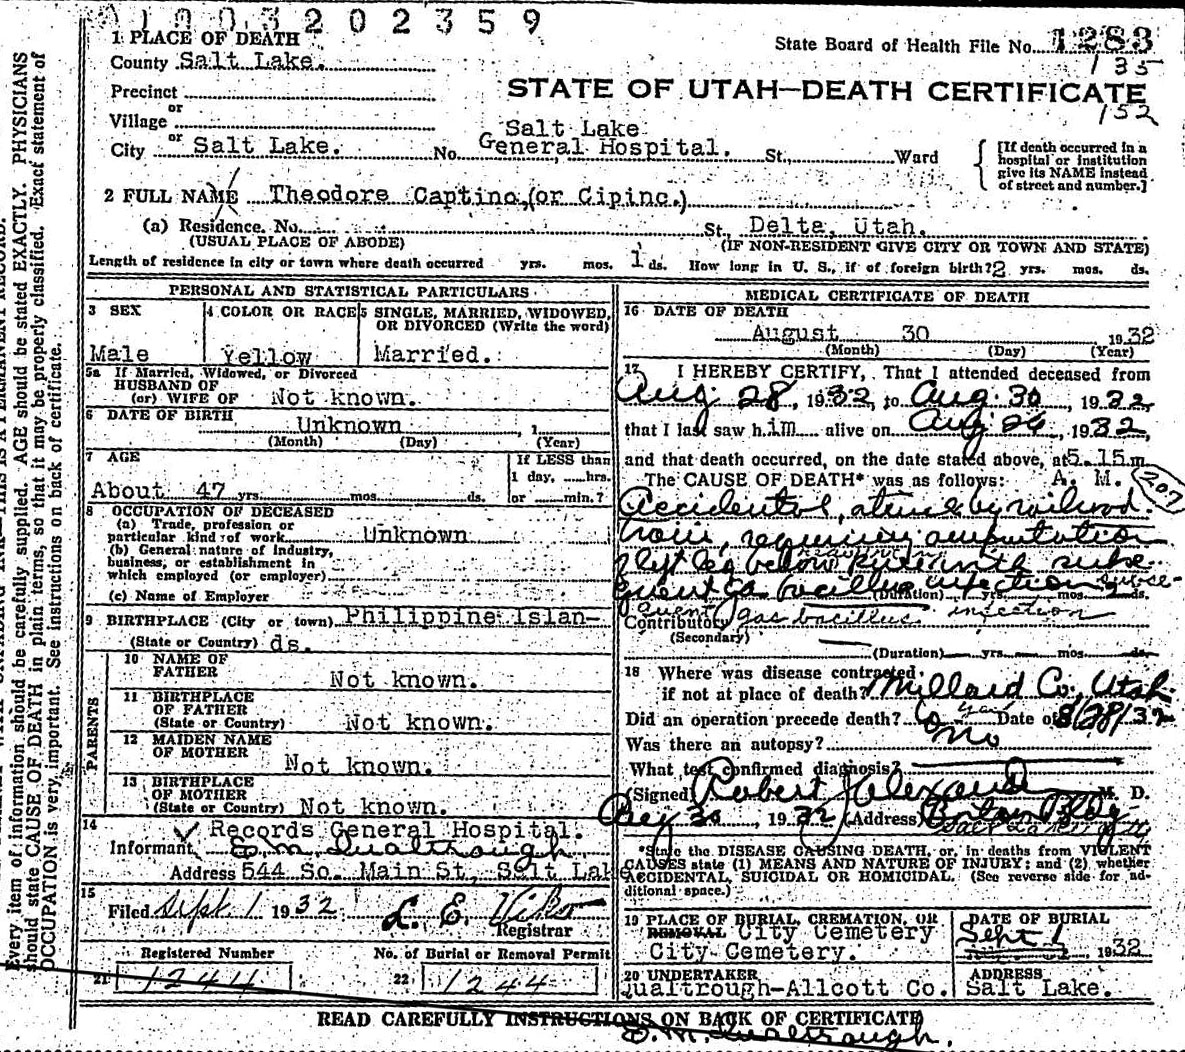 1003202359
1 PLACE OF DEATH
State Board of Health File No. 1283
County Salt Lake.
135
Precinct
STATE OF UTAH—DEATH CERTIFICATE
or
152
Village
Salt Lake
City or Salt Lake. No. General Hospital. St., Ward
[If death occurred in a hospital or institution give its NAME instead of street and number.]
2 FULL NAME Theodore Captino (or Cipinc.)
(a) Residence. No. St., Delta, Utah.
(USUAL PLACE OF ABODE) (IF NON-RESIDENT GIVE CITY OR TOWN AND STATE)
Length of residence in city or town where death occurred yrs. mos. 1 ds. How long in U. S., if of foreign birth? 2 yrs. mos. ds.
PERSONAL AND STATISTICAL PARTICULARS
3 SEX 4 COLOR OR RACE 5 SINGLE, MARRIED, WIDOWED, OR DIVORCED (Write the word)
Male Yellow Married.
5a If Married, Widowed, or Divorced
HUSBAND OF
(or) WIFE OF Not known.
6 DATE OF BIRTH Unknown , 1
(Month) (Day) (Year)
7 AGE
If LESS than
1 day, hrs.
About 47 yrs. mos. ds. or min.?
8 OCCUPATION OF DECEASED
(a) Trade, profession or
particular kind of work Unknown
(b) General nature of industry,
business, or establishment in
which employed (or employer)
(c) Name of Employer
9 BIRTHPLACE (City or town) Philippine Islan-
(State or Country) ds.
PARENTS
10 NAME OF
FATHER Not known.
11 BIRTHPLACE
OF FATHER
(State or Country) Not known.
12 MAIDEN NAME
OF MOTHER Not known.
13 BIRTHPLACE
OF MOTHER
(State or Country) Not known.
14 Records General Hospital.
Informant E. M. Qualtrough
Address 544 So. Main St, Selt Lak
15
Filed Sept 1 1932 L. E.
Registrar
Registered Number No. of Burial or Removal Permit
21 1244 22 1244
MEDICAL CERTIFICATE OF DEATH
16 DATE OF DEATH
August 30 1932
(Month) (Day) (Year)
17 I HEREBY CERTIFY, That I attended deceased from
Aug 28, 1932, to Aug. 30, 1932,
that I last saw him alive on Aug , 1932,
and that death occurred, on the date stated above, at 5.15 m.
The CAUSE OF DEATH* was as follows: A. M.
207
Accidental, struck by railroad
train, requiring amputation
of left leg below knee with subse
quent gas bacillus infection
(Duration) yrs. mos. 2 ds.
subse-
Contributory quent gas bacillus infection
(Secondary)
(Duration) yrs. mos. ds.
18 Where was disease contracted
if not at place of death? Millard Co, Utah
Did an operation precede death? yes Date of 8/28/32
Was there an autopsy? no
What test confirmed diagnosis?
(Signed) Robert Alexander M. D.
30, 1932 (Address) Boston Bldg
Salt Lake City
*State the DISEASE CAUSING DEATH, or, in deaths from VIOLENT
CAUSES state (1) MEANS AND NATURE OF INJURY; and (2) whether
ACCIDENTAL, SUICIDAL OR HOMICIDAL. (See reverse side for ad-
ditional space.)
19 PLACE OF BURIAL, CREMATION, OR REMOVAL City Cemetery
City Cemetery.
DATE OF BURIAL
Sept 1 1932
20 UNDERTAKER
Qualtrough-Allcott Co.
ADDRESS
Salt Lake.
READ CAREFULLY INSTRUCTIONS ON BACK OF CERTIFICATE
E. M. Qualtrough.
Every item of information should be carefully supplied. AGE should be stated EXACTLY. PHYSICIANS
should state CAUSE OF DEATH in plain terms, so that it may be properly classified. Exact statement of
OCCUPATION is very important. See instructions on back of certificate.